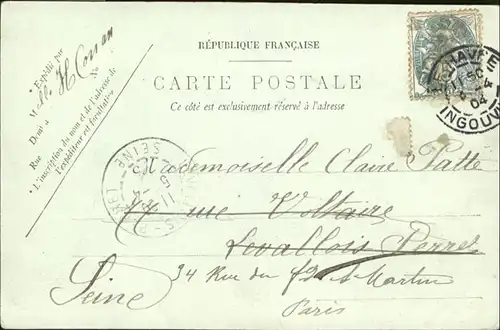 RÉPUBLIQUE FRANÇAISE
CARTE POSTALE
Ce côté est exclusivement réservé à l'adresse
Expédié par
M
Demt à
Rue No
L'inscription du nom et de l'adresse de
l'expéditeur est facultative
LE HAVRE
4
04
INGOUV
SEINE
Mademoiselle Claire Patte
rue Voltaire
Levallois Perret
34 Rue du Fg St Martin
Seine Paris